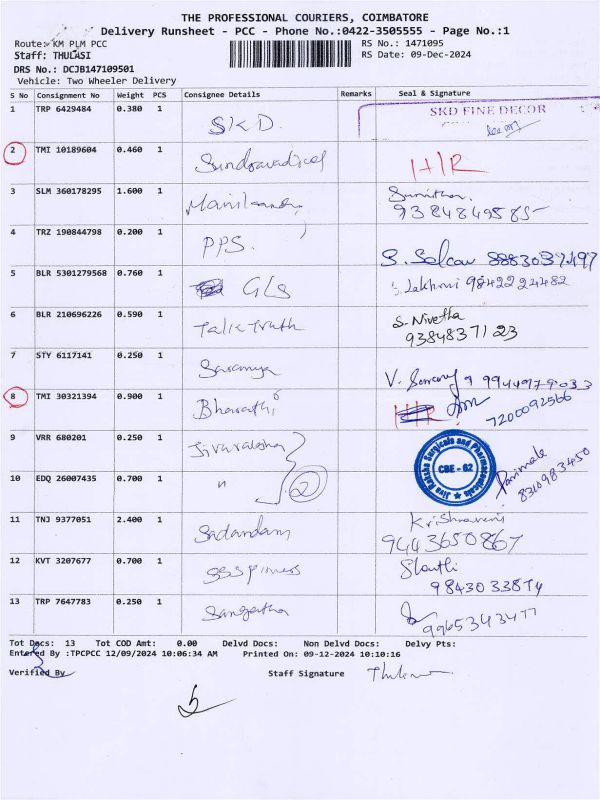 THE PROFESSIONAL COURIERS, COIMBATORE
Delivery Runsheet - PCC - Phone No.:0422-3505555 - Page No.:1
Route: KM PLM PCC
RS No.: 1471095
Staff: THULASI
RS Date: 09-Dec-2024
DRS No.: DCJB147109501
Vehicle: Two Wheeler Delivery
S No Consignment No Weight PCS Consignee Details Remarks Seal & Signature
1 TRP 6429484 0.380 1 SKD. SKD FINE DECOR
2 TMI 10189604 0.460 1 H/R
3 SLM 360178295 1.600 1
4 TRZ 190844798 0.200 1 PPS. S. Selcav
5 BLR 5301279568 0.760 1 GLS 9842224482
6 BLR 210696226 0.590 1 Talk Truth S. Nivetha
9384837123
7 STY 6117141 0.250 1 Saranya
8 TMI 30321394 0.900 1 Bharathi 7200092566
9 VRR 680201 0.250 1
Jiva Raksha Surgicals and Pharmaceuticals
CBE - 62
Parimala
8310983450
10 EDQ 26007435 0.700 1 " 2
11 TNJ 9377051 2.400 1 Sadandam
9443650867
12 KVT 3207677 0.700 1
13 TRP 7647783 0.250 1 Sangeetha
Tot Docs: 13 Tot COD Amt: 0.00 Delvd Docs: Non Delvd Docs: Delvy Pts:
Entered By :TPCPCC 12/09/2024 10:06:34 AM Printed On: 09-12-2024 10:10:16
Verified By Staff Signature